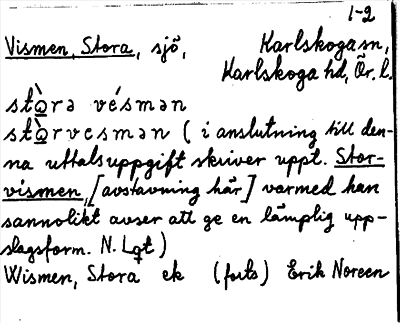 1-2
Vismen, Stora, sjö, Karlskoga sn,
Karlskoga hd, Ör. l.
stò̱rə vésmən
stò̱rvesmən (i anslutning till den-
na uttalsuppgift skriver uppt. Stor-
vismen, [avstavning här] varmed han
sannolikt avser att ge en lämplig upp-
slagsform. N. Lqt)
Wismen, Stora ek (forts) Erik Noreen